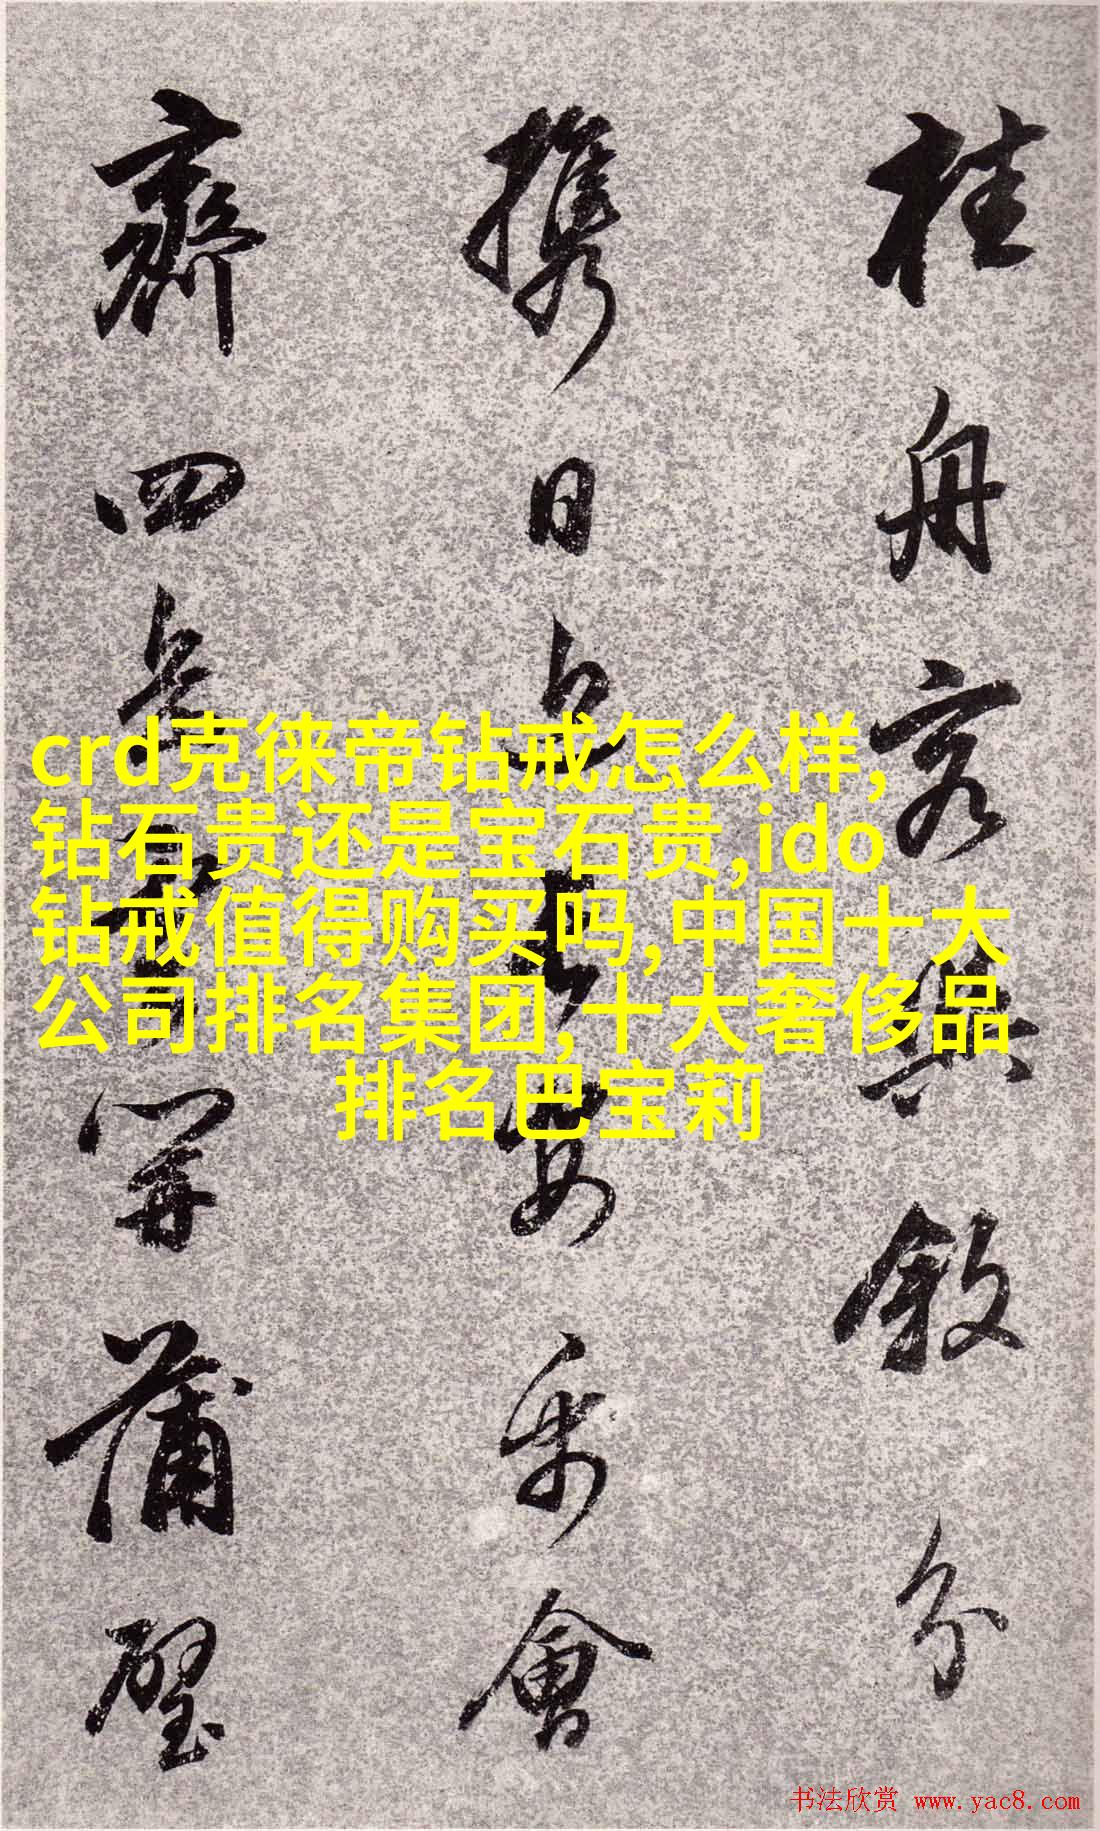 桂舟容與敘分
攜日與長安樂會
齊四開蒲璧
crd克徕帝钻戒怎么样,
钻石贵还是宝石贵,ido
钻戒值得购买吗,中国十大
公司排名集团,十大奢侈品
排名巴宝莉
书法欣赏 www.yac8.com